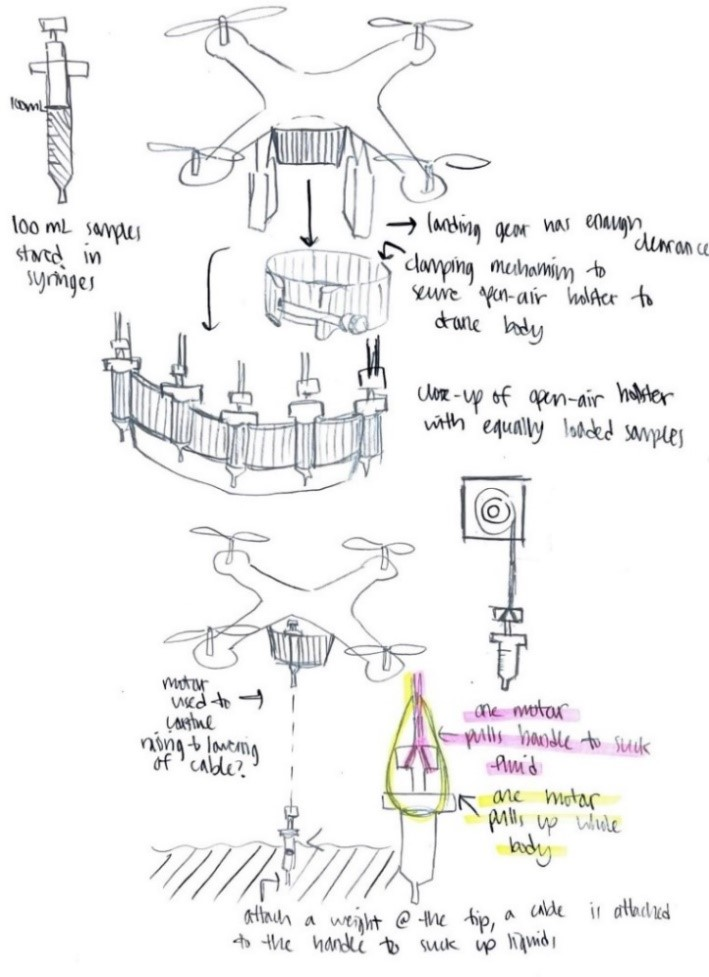 100mL
100 mL samples
stored in
syringes
→ landing gear has enough
clearance
clamping mechanism to
secure open-air holster to
drone body
close-up of open-air holster
with equally loaded samples
motor
used to →
rising & lowering
of cable?
one motor
pulls handle to suck
fluid
one motor
pulls up whole
body
attach a weight @ the tip, a cable is attached
to the handle to suck up liquids